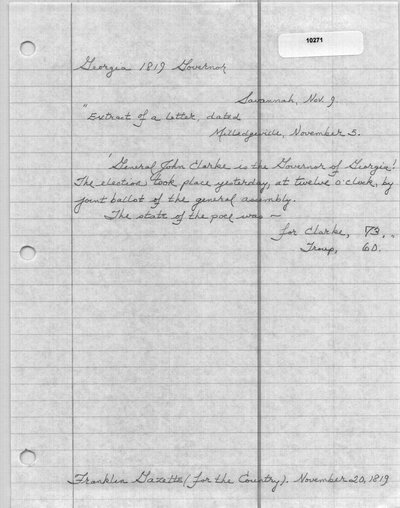 10271
Georgia 1819 Governor
Savannah, Nov 9.
"Extract of a letter, dated
Milledgeville, November 5.
'General John Clarke is the Governor of Georgia!
The election took place yesterday, at twelve o'clock, by
joint ballot of the general assembly.
The state of the poll was —
for Clarke, 73.
Troup, 60.
Franklin Gazette (for the Country). November 20, 1819